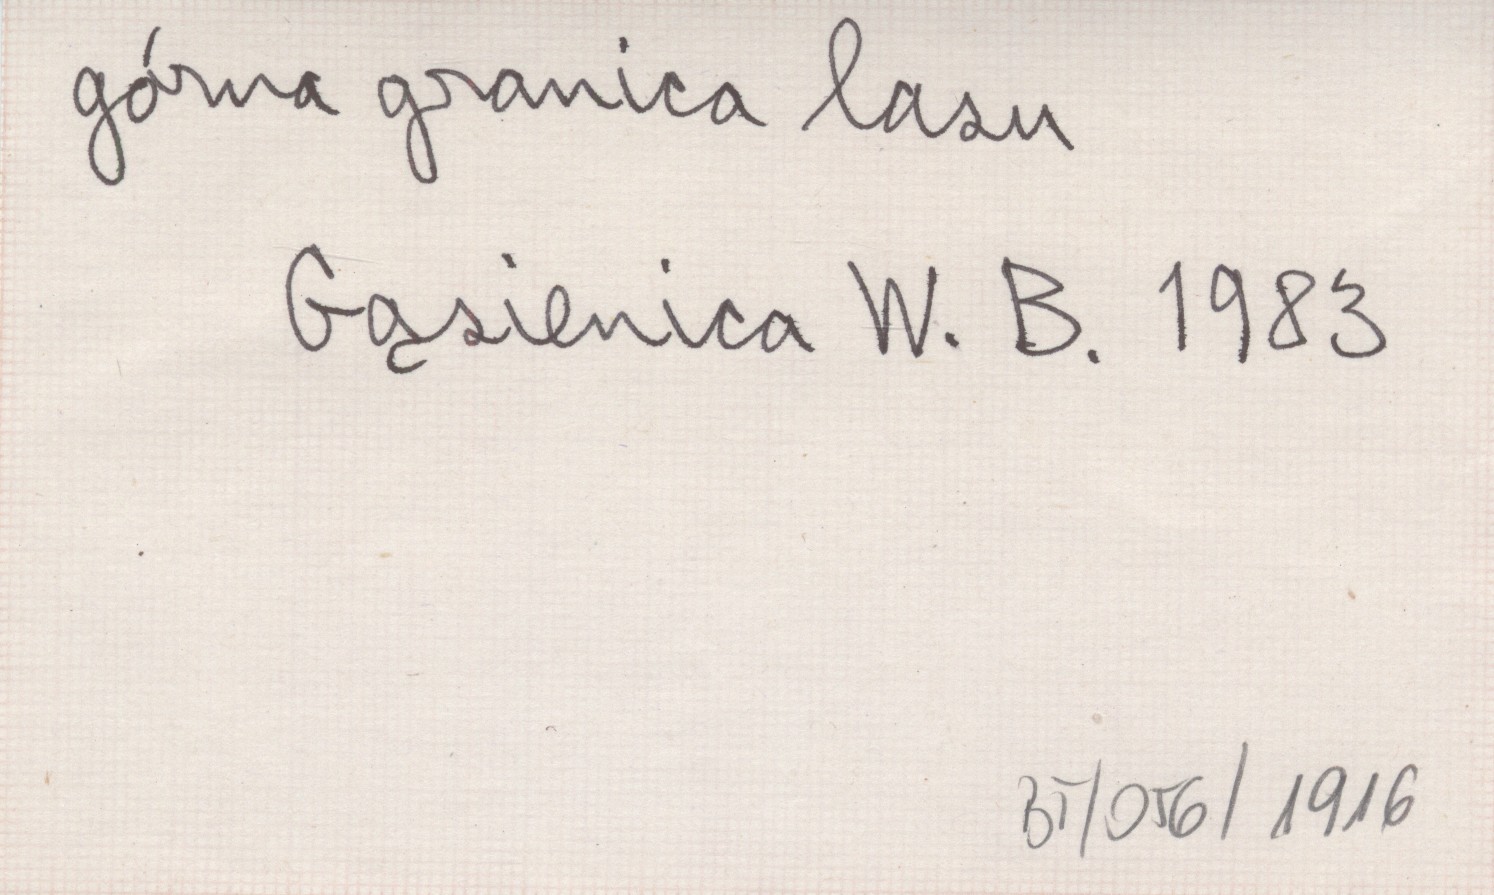 górna granica lasu
Gąsienica W. B. 1983
BT/056/1916